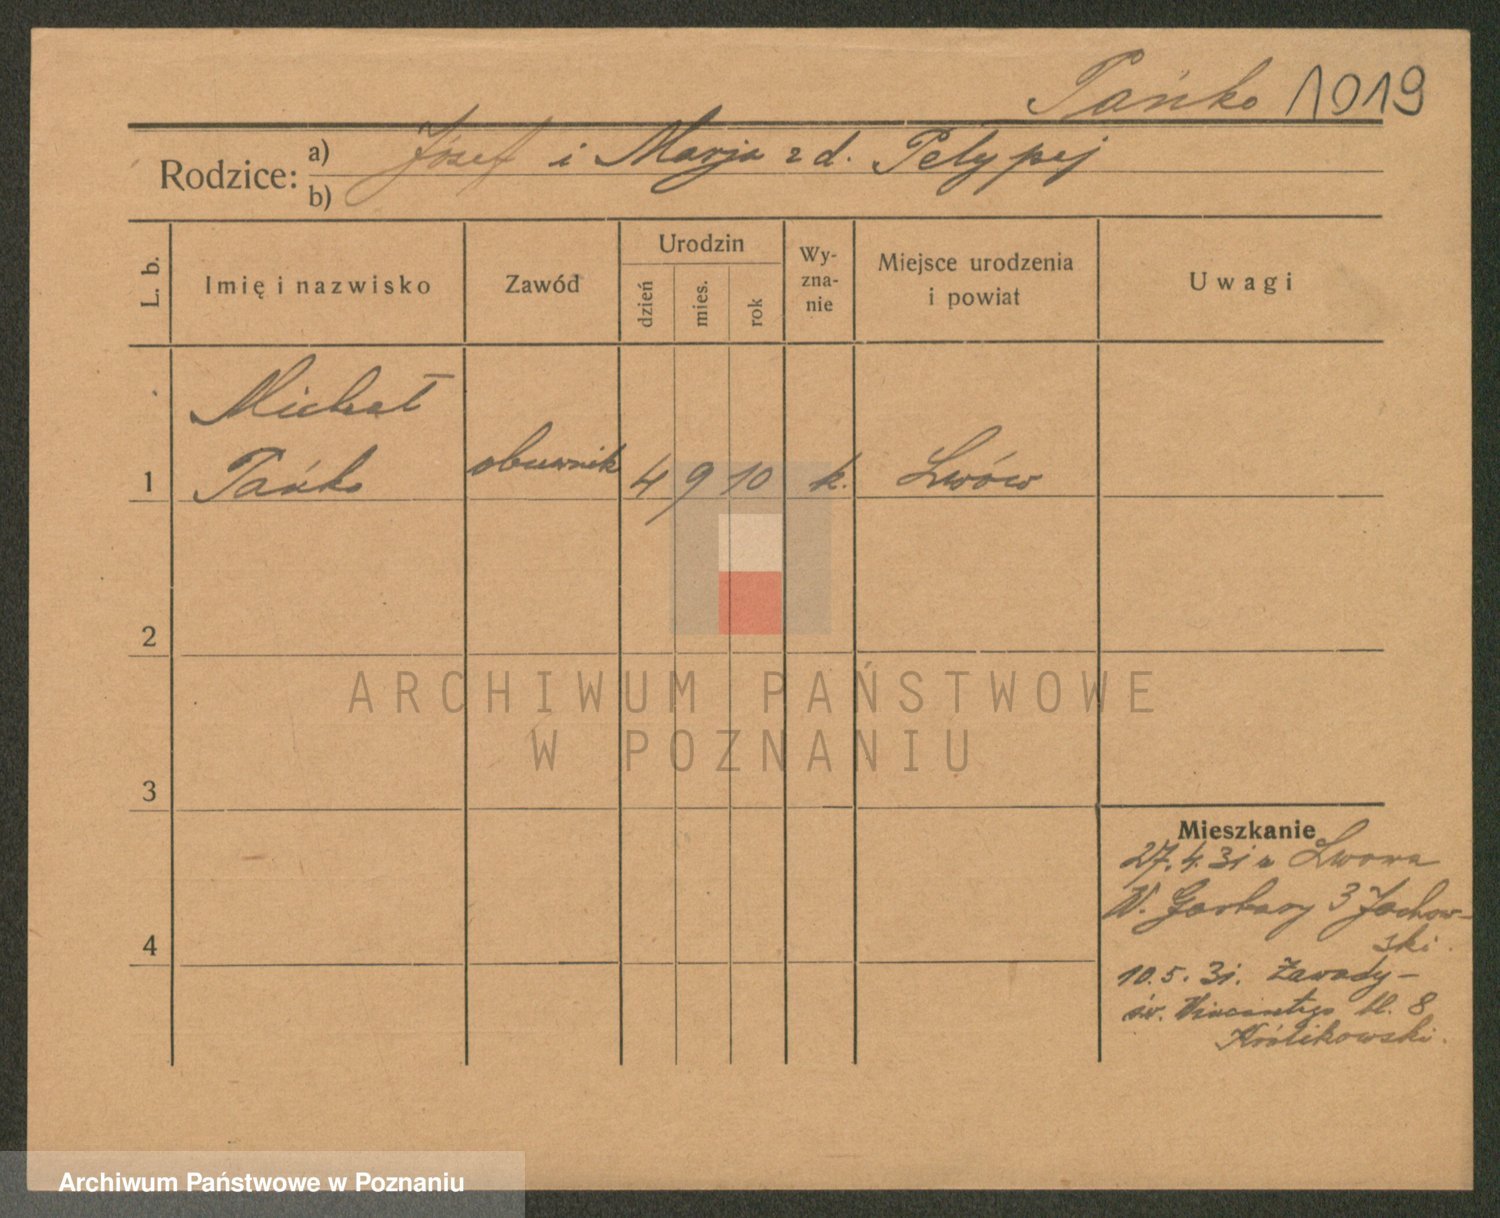 Pańko 1019
Rodzice: a) Józef i Marja z d. Pelypej
b)
L. b.
Imię i nazwisko
Zawód
Urodzin
dzień
mies.
rok
Wy-
zna-
nie
Miejsce urodzenia
i powiat
Uwagi
Michał
1 Pańko obuwnik 4 9 10 k. Lwów
2
ARCHIWUM PAŃSTWOWE
W POZNANIU
3
4
Mieszkanie
27.4.31 z Lwowa
W. Garbary 3 Jachow-
ski.
10.5.31. Zawady-
św. Wincentego bl. 8
Królikowski.
Archiwum Państwowe w Poznaniu